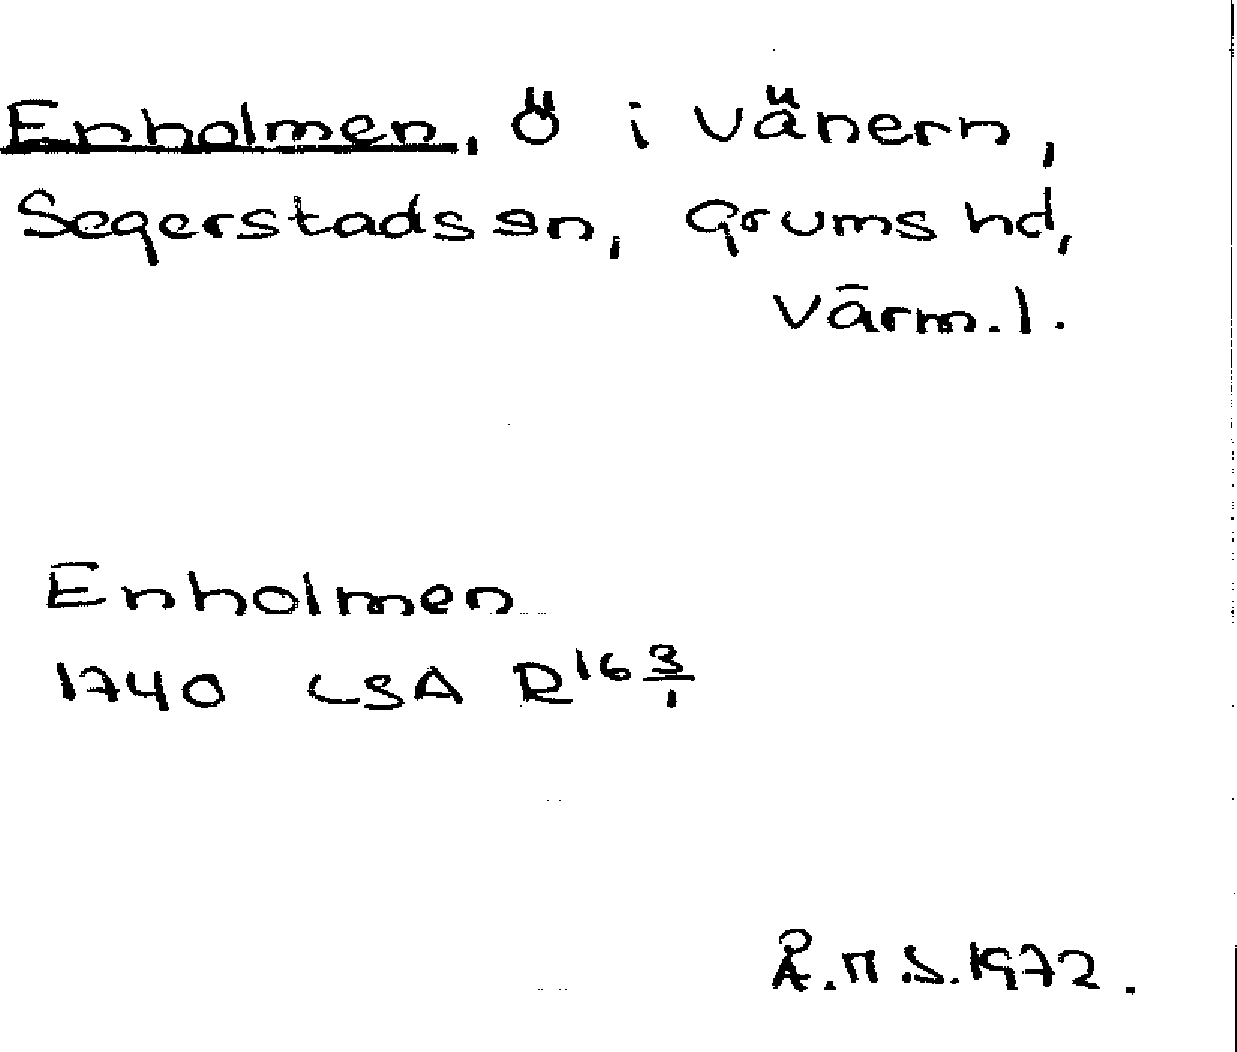 Enholmen, ö i Vänern,
Segerstads sn, Grums hd,
Värm. l.
Enholmen
1740 LSA R16 3/1
R. H. S. 1972.